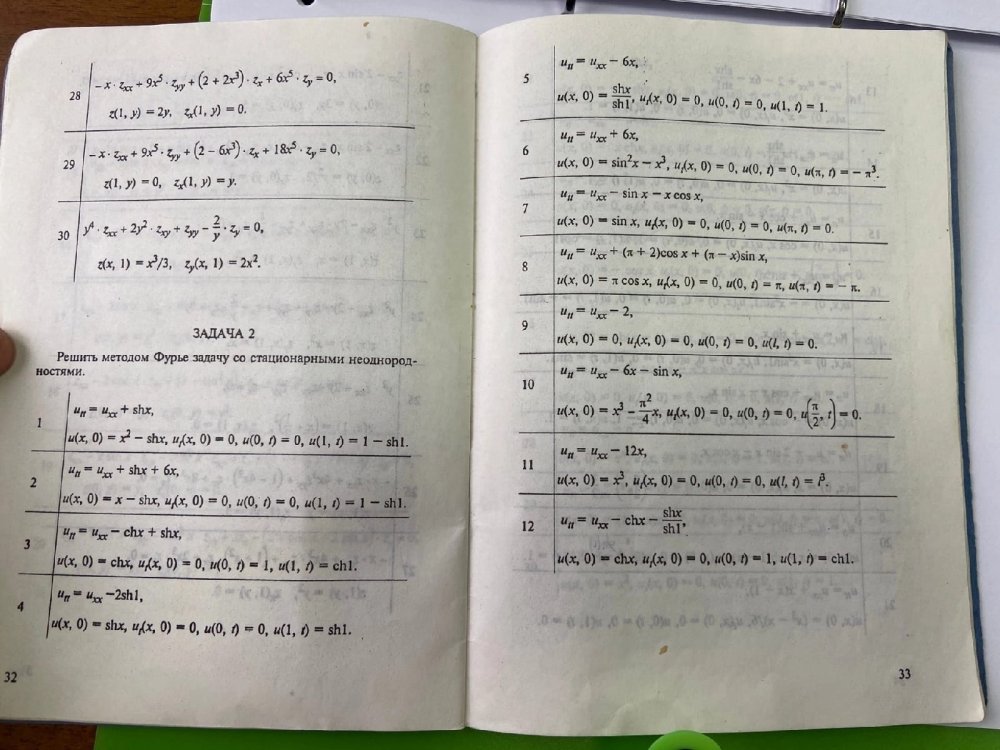 28
−x · z_xx + 9x⁵ · z_yy + (2 + 2x³) · z_x + 6x⁵ · z_y = 0,
z(1, y) = 2y, z_x(1, y) = 0.
29
−x · z_xx + 9x⁵ · z_yy + (2 − 6x³) · z_x + 18x⁵ · z_y = 0,
z(1, y) = 0, z_x(1, y) = y.
30
y⁴ · z_xx + 2y² · z_xy + z_yy − 2/y · z_y = 0,
z(x, 1) = x³/3, z_y(x, 1) = 2x².
ЗАДАЧА 2
Решить методом Фурье задачу со стационарными неоднород-
ностями.
1
u_tt = u_xx + shx,
u(x, 0) = x² − shx, u_t(x, 0) = 0, u(0, t) = 0, u(1, t) = 1 − sh1.
2
u_tt = u_xx + shx + 6x,
u(x, 0) = x − shx, u_t(x, 0) = 0, u(0, t) = 0, u(1, t) = 1 − sh1.
3
u_tt = u_xx − chx + shx,
u(x, 0) = chx, u_t(x, 0) = 0, u(0, t) = 1, u(1, t) = ch1.
4
u_tt = u_xx −2sh1,
u(x, 0) = shx, u_t(x, 0) = 0, u(0, t) = 0, u(1, t) = sh1.
32
5
u_tt = u_xx − 6x,
u(x, 0) = shx/sh1, u_t(x, 0) = 0, u(0, t) = 0, u(1, t) = 1.
6
u_tt = u_xx + 6x,
u(x, 0) = sin²x − x³, u_t(x, 0) = 0, u(0, t) = 0, u(π, t) = − π³.
7
u_tt = u_xx − sin x − x cos x,
u(x, 0) = sin x, u_t(x, 0) = 0, u(0, t) = 0, u(π, t) = 0.
8
u_tt = u_xx + (π + 2)cos x + (π − x)sin x,
u(x, 0) = π cos x, u_t(x, 0) = 0, u(0, t) = π, u(π, t) = − π.
9
u_tt = u_xx − 2,
u(x, 0) = 0, u_t(x, 0) = 0, u(0, t) = 0, u(l, t) = 0.
10
u_tt = u_xx − 6x − sin x,
u(x, 0) = x³ − π²/4 x, u_t(x, 0) = 0, u(0, t) = 0, u(π/2, t) = 0.
11
u_tt = u_xx − 12x,
u(x, 0) = x³, u_t(x, 0) = 0, u(0, t) = 0, u(l, t) = l³.
12
u_tt = u_xx − chx − shx/sh1,
u(x, 0) = chx, u_t(x, 0) = 0, u(0, t) = 1, u(1, t) = ch1.
33